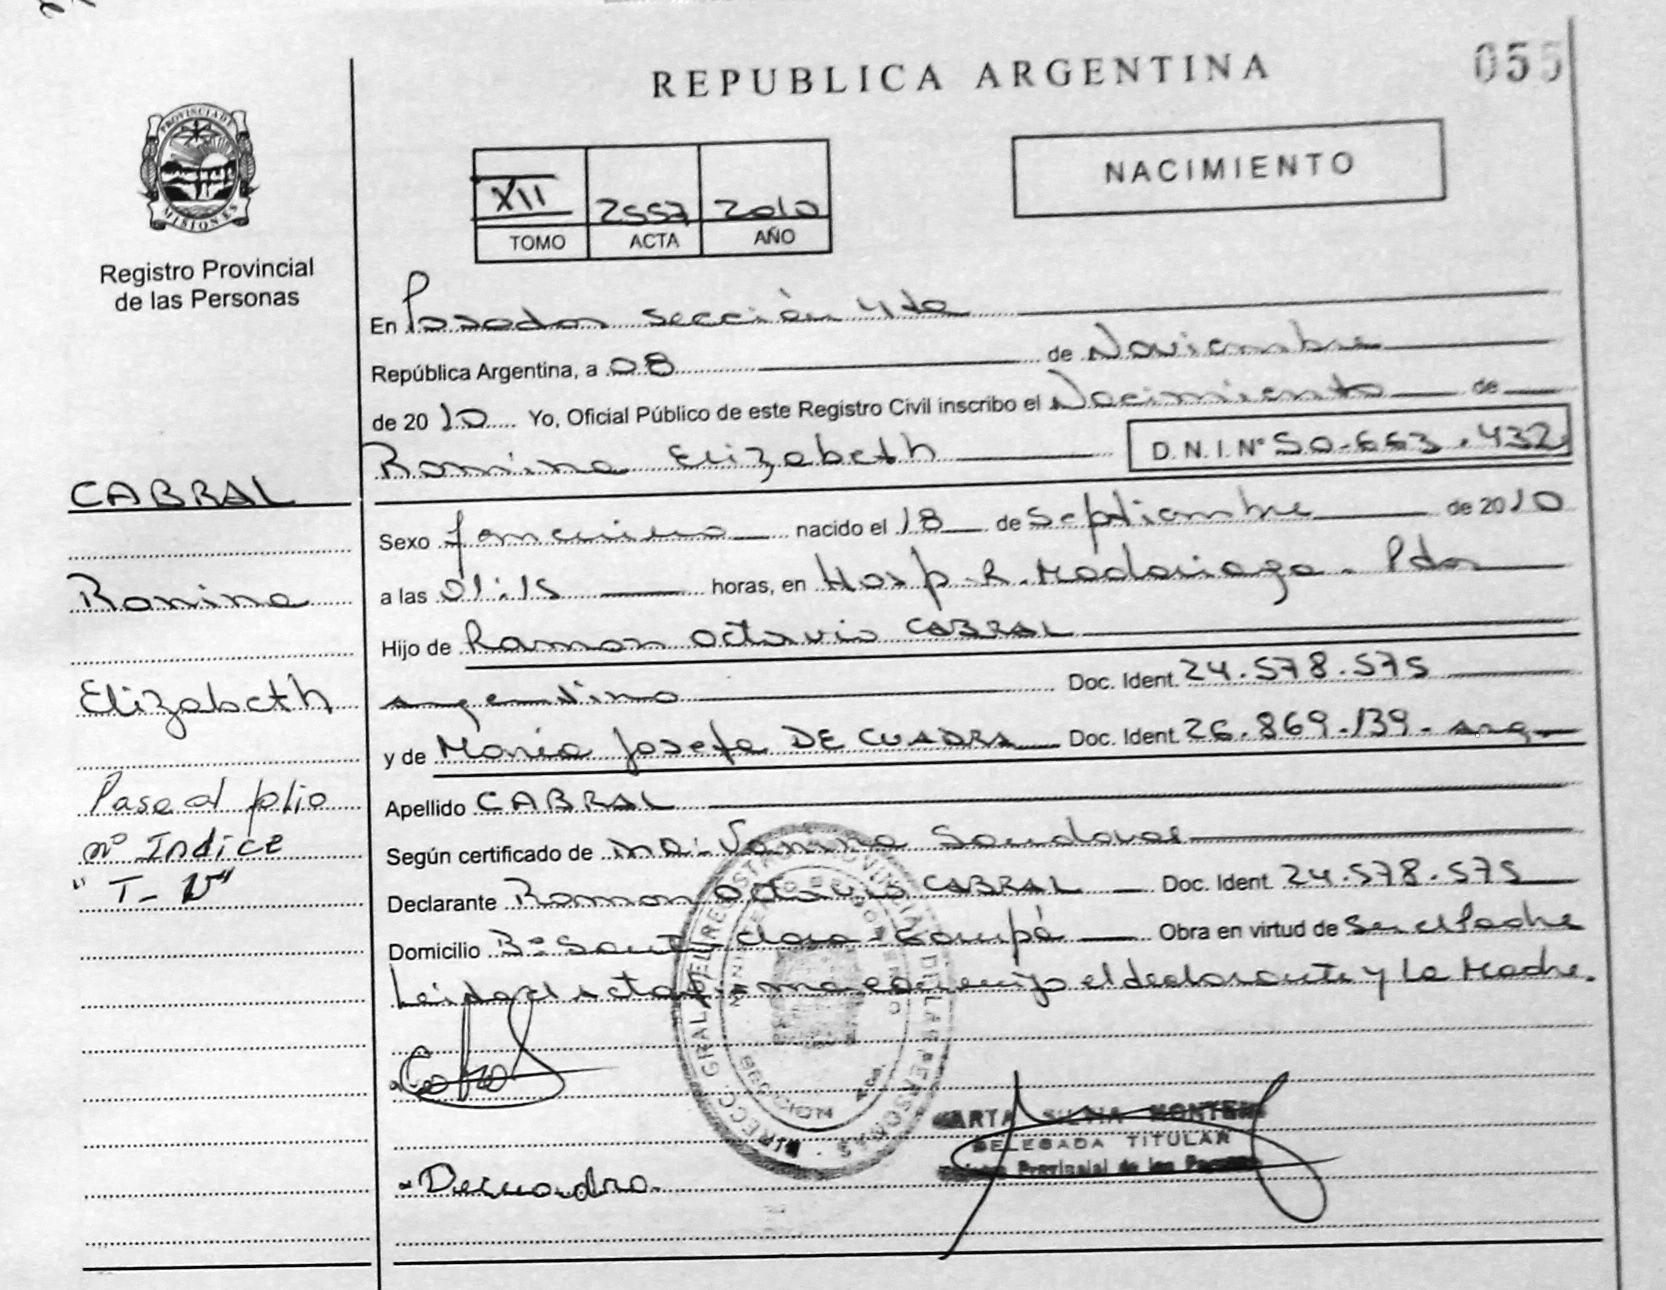 REPUBLICA ARGENTINA
055
PROVINCIA DE
MISIONES
Registro Provincial
de las Personas
XII 2557 2010
TOMO ACTA AÑO
NACIMIENTO
En Posadas sección 4ta
República Argentina, a 08 de Noviembre
de 2010 Yo, Oficial Público de este Registro Civil inscribo el Nacimiento de
Romina Elizabeth D.N.I. Nº 50.663.432
CABRAL
Romina
Elizabeth
Pase al folio
nº Indice
" T - V"
Sexo femenino nacido el 18 de Septiembre de 2010
a las 01:15 horas, en Hosp. R. Madariaga - Pdas
Hijo de Ramon Octavio CABRAL
argentino Doc. Ident. 24.578.575
y de Maria Josefa DE CUADRA Doc. Ident. 26.869.139 - arg
Apellido CABRAL
Según certificado de Vanina Sandoval
Declarante Ramon Octavio CABRAL Doc. Ident. 24.578.575
Domicilio Bº Santa Clara - Garupá Obra en virtud de Ser el Padre
Leida el acta firma conmigo el declarante y la Madre.
DIRECC. GRAL. DEL REGISTRO PROVINCIAL DE LAS PERSONAS
MINISTERIO DE GOBIERNO
Cabral
Decuadra
MARTA SILVIA
DELEGADA TITULAR
Provincial de las